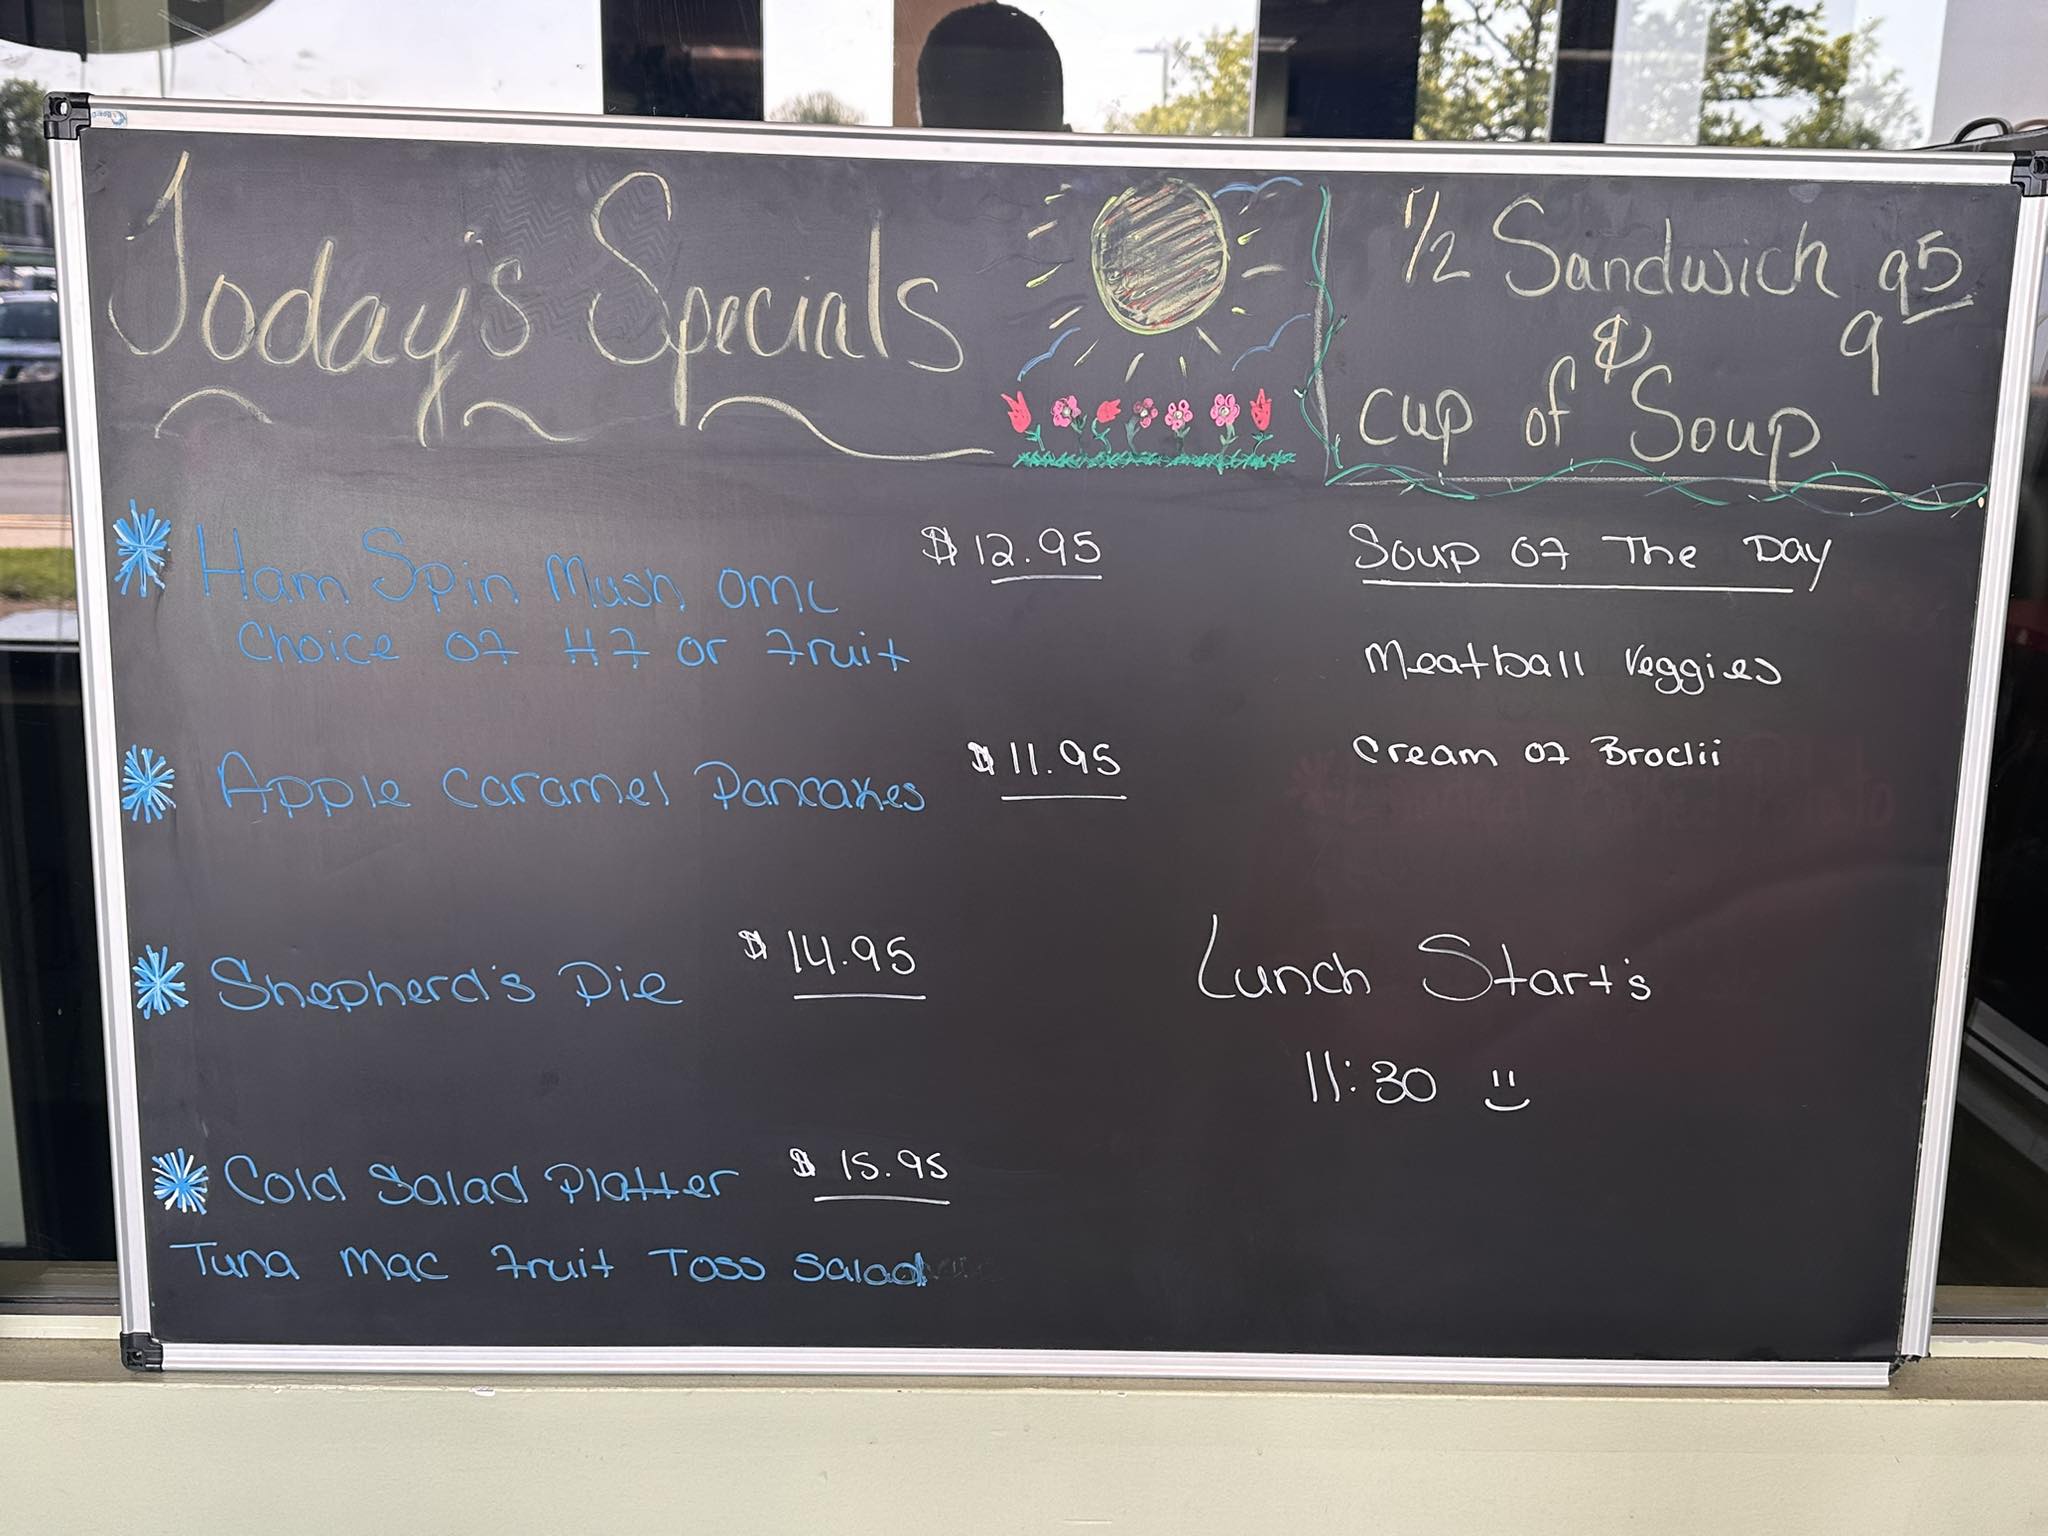 Today's Specials
1/2 Sandwich 9 95
&
cup of Soup
Ham Spin Mush Ome $12.95
Choice of HF or Fruit
Apple Caramel Pancakes $11.95
Shepherd's Pie $14.95
Cold Salad Platter $15.95
Tuna Mac Fruit Toss Salad
Soup Of The Day
Meatball Veggies
Cream Of Broclii
Lunch Start's
11:30